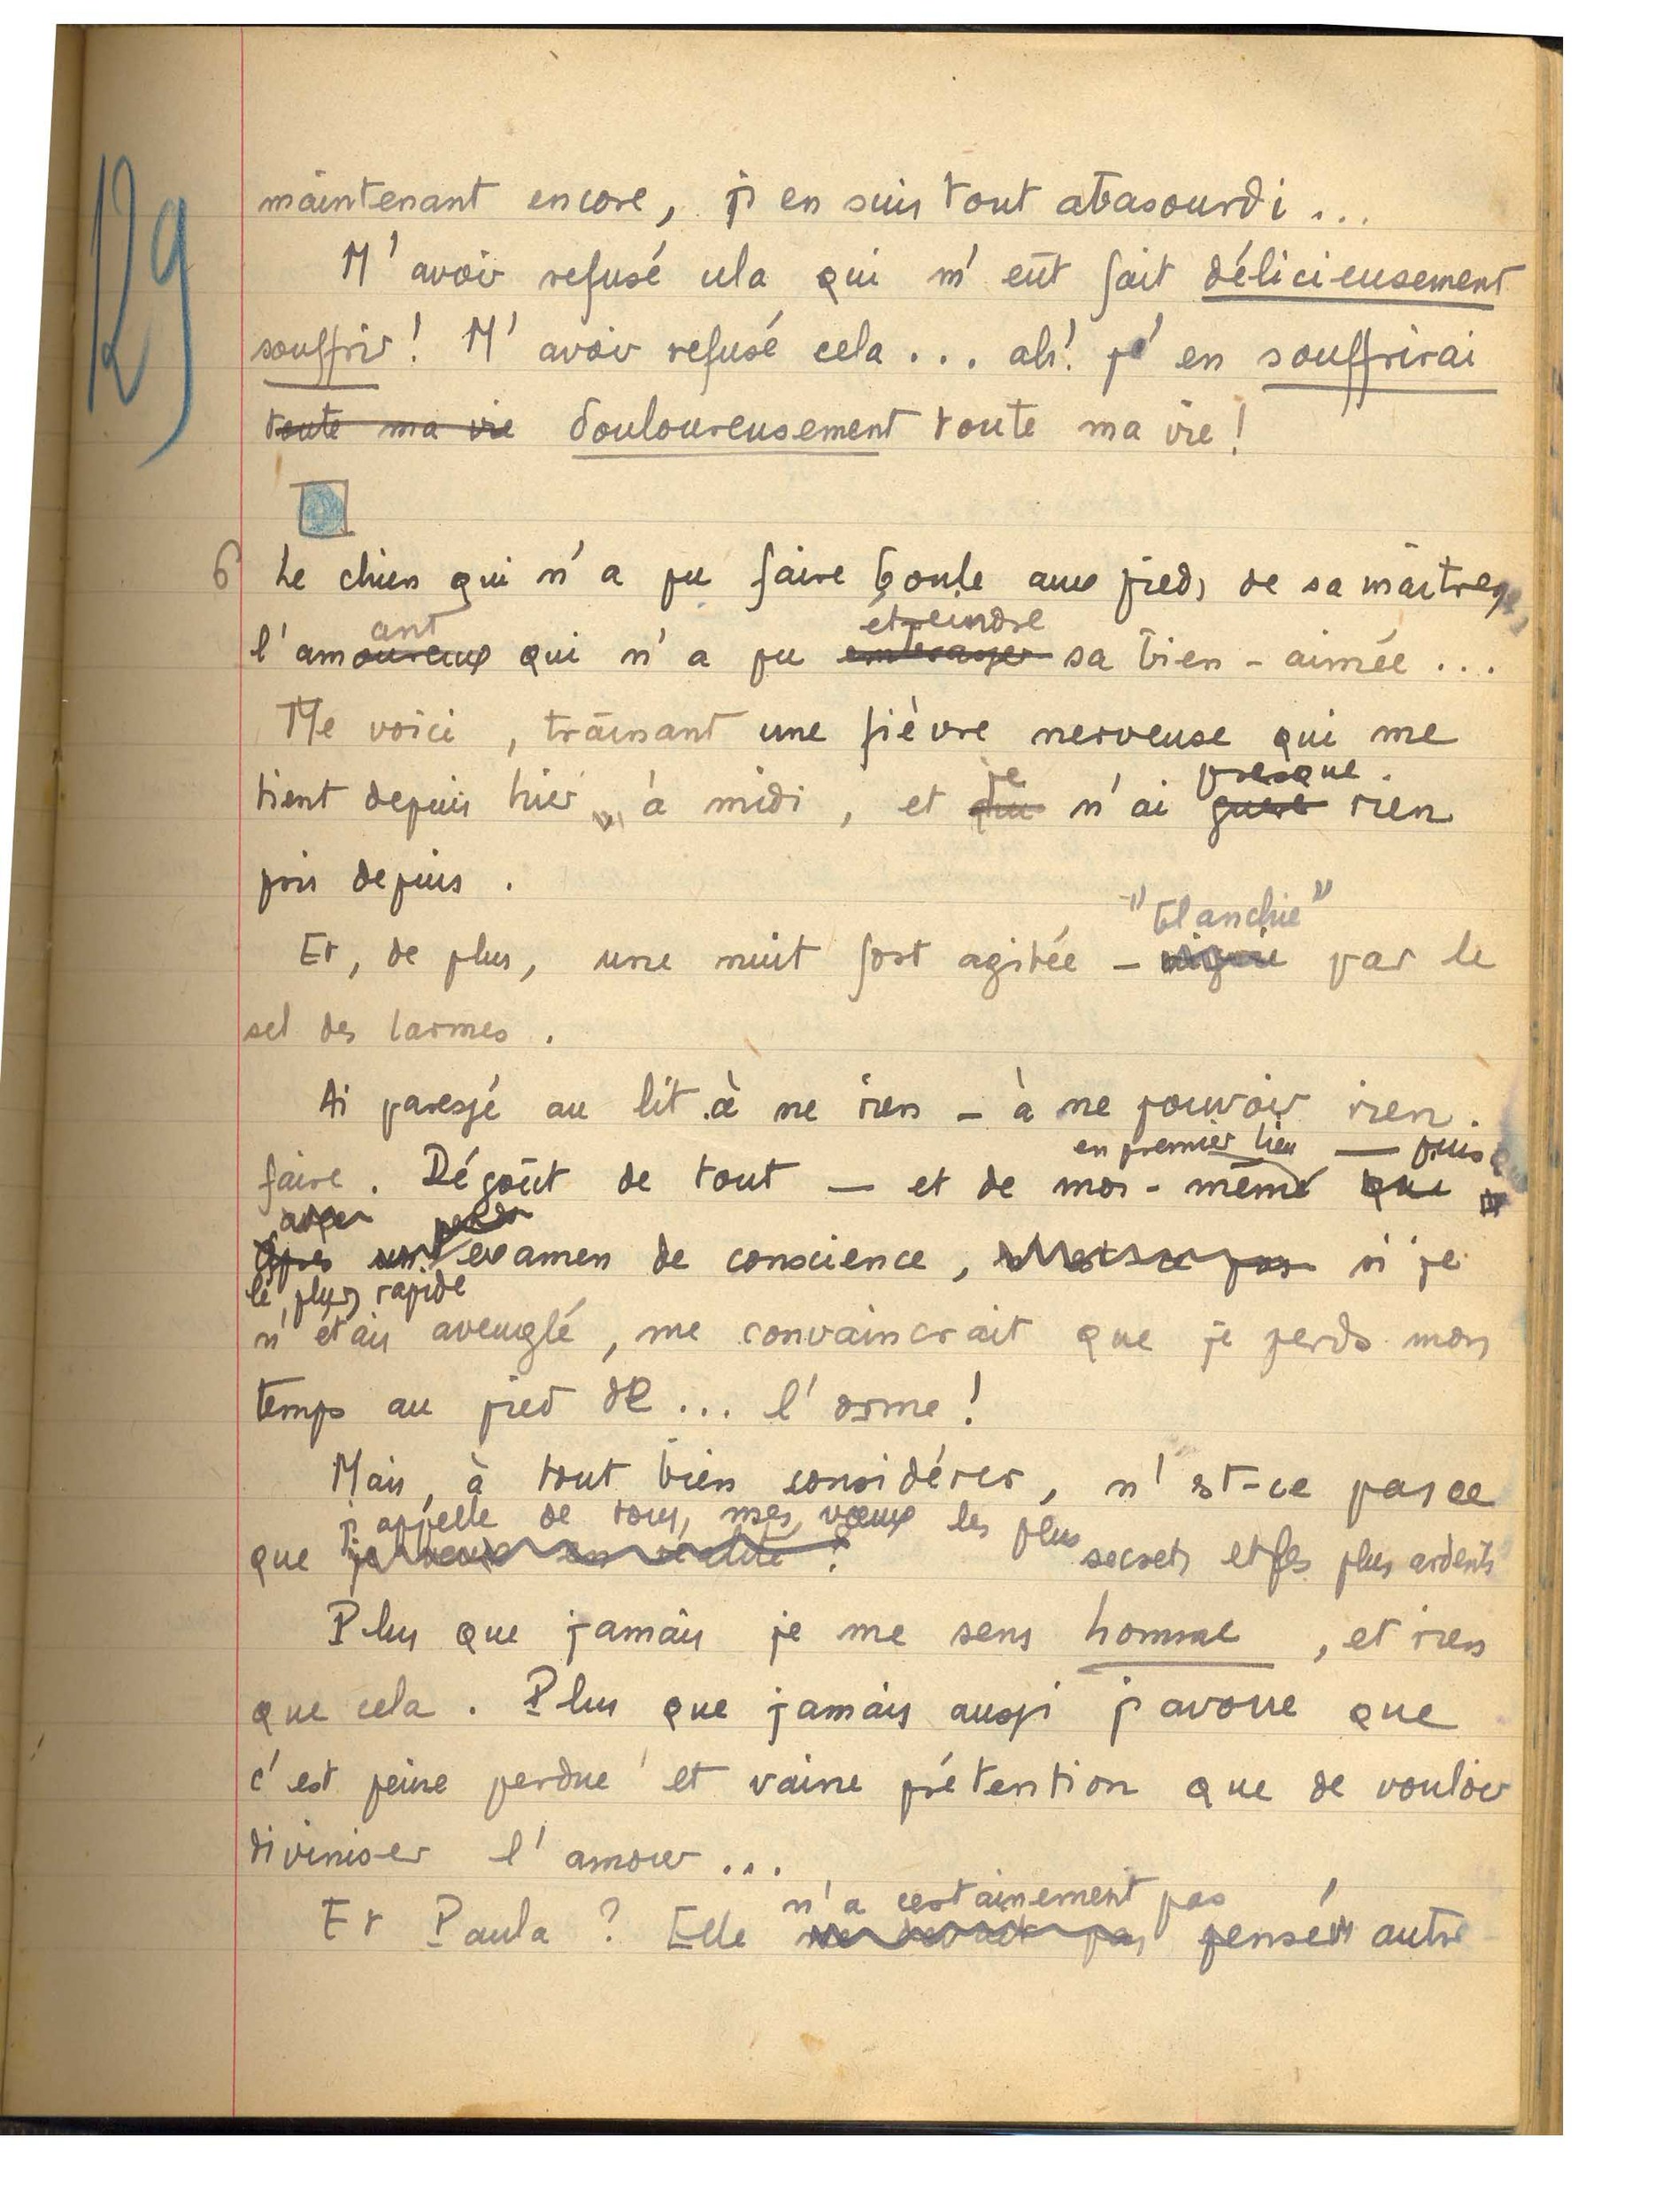 129
maintenant encore, j'en suis tout abasourdi...
M'avoir refusé cela qui m'eût fait délicieusement
souffrir ! M'avoir refusé cela... ah! j'en souffrirai
toute ma vie douloureusement toute ma vie !
6 Le chien qui n'a pu faire boule aux pieds de sa maîtresse,
ant étreindre
l'amoureux qui n'a pu embrasser sa bien-aimée...
Me voici, traînant une fièvre nerveuse qui me
je presque
tient depuis hier, à midi, et n'ai guère rien
pris depuis.
"blanchie"
Et, de plus, une nuit fort agitée - par le
sel des larmes.
Ai paressé au lit à ne rien - à ne pouvoir rien
en premier lieu — puisque
faire. Dégoût de tout — et de moi-même que
Après un examen de conscience, si je
le plus rapide
n'étais aveuglé, me convaincrait que je perds mon
temps au pied de... l'orme !
Mais, à tout bien considérer, n'est-ce pas ce
j'appelle de tous mes vœux les plus
que je veux en réalité ? secrets et les plus ardents
Plus que jamais je me sens homme, et rien
que cela. Plus que jamais aussi j'avoue que
c'est peine perdue et vaine prétention que de vouloir
diviniser l'amour...
n'a certainement pas
Et Paula ? Elle ne devait pas pensé autre